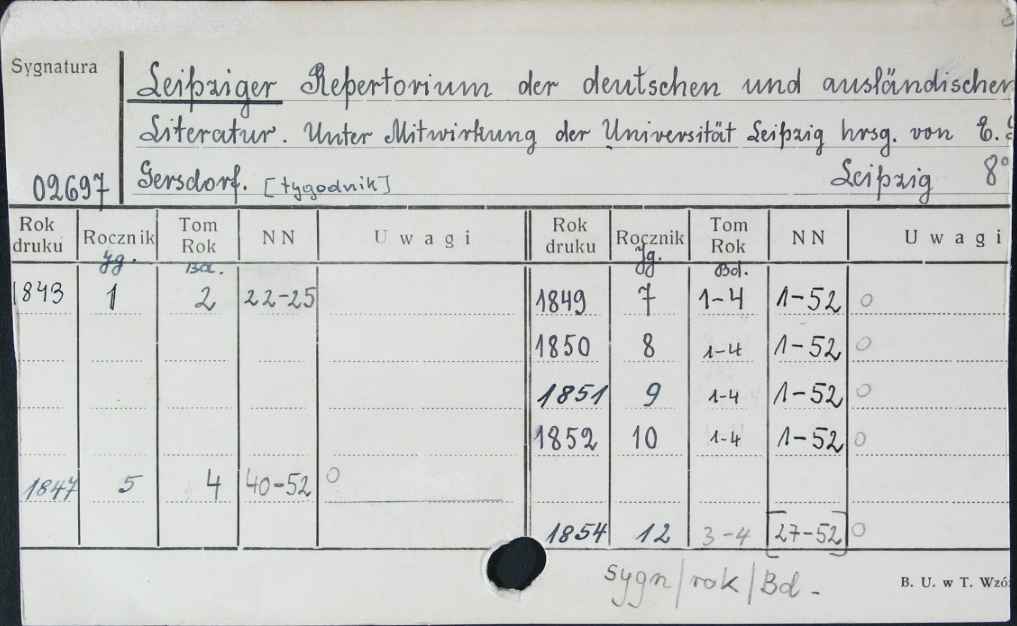 Sygnatura
Leipziger Repertorium der deutschen und ausländischen
Literatur. Unter Mitwirkung der Universität Leipzig hrsg. von E.
02697 Gersdorf. [tygodnik] Leipzig 8°
Rok druku Rocznik Tom Rok NN Uwagi Rok druku Rocznik Tom Rok NN Uwagi
Jg. Bd. Jg. Bd.
1843 1 2 22-25 1849 7 1-4 1-52 o
1850 8 1-4 1-52 o
1851 9 1-4 1-52 o
1852 10 1-4 1-52 o
1847 5 4 40-52 o
1854 12 3-4 [27-52] o
sygn/rok/Bd.-
B. U. w T. Wzó